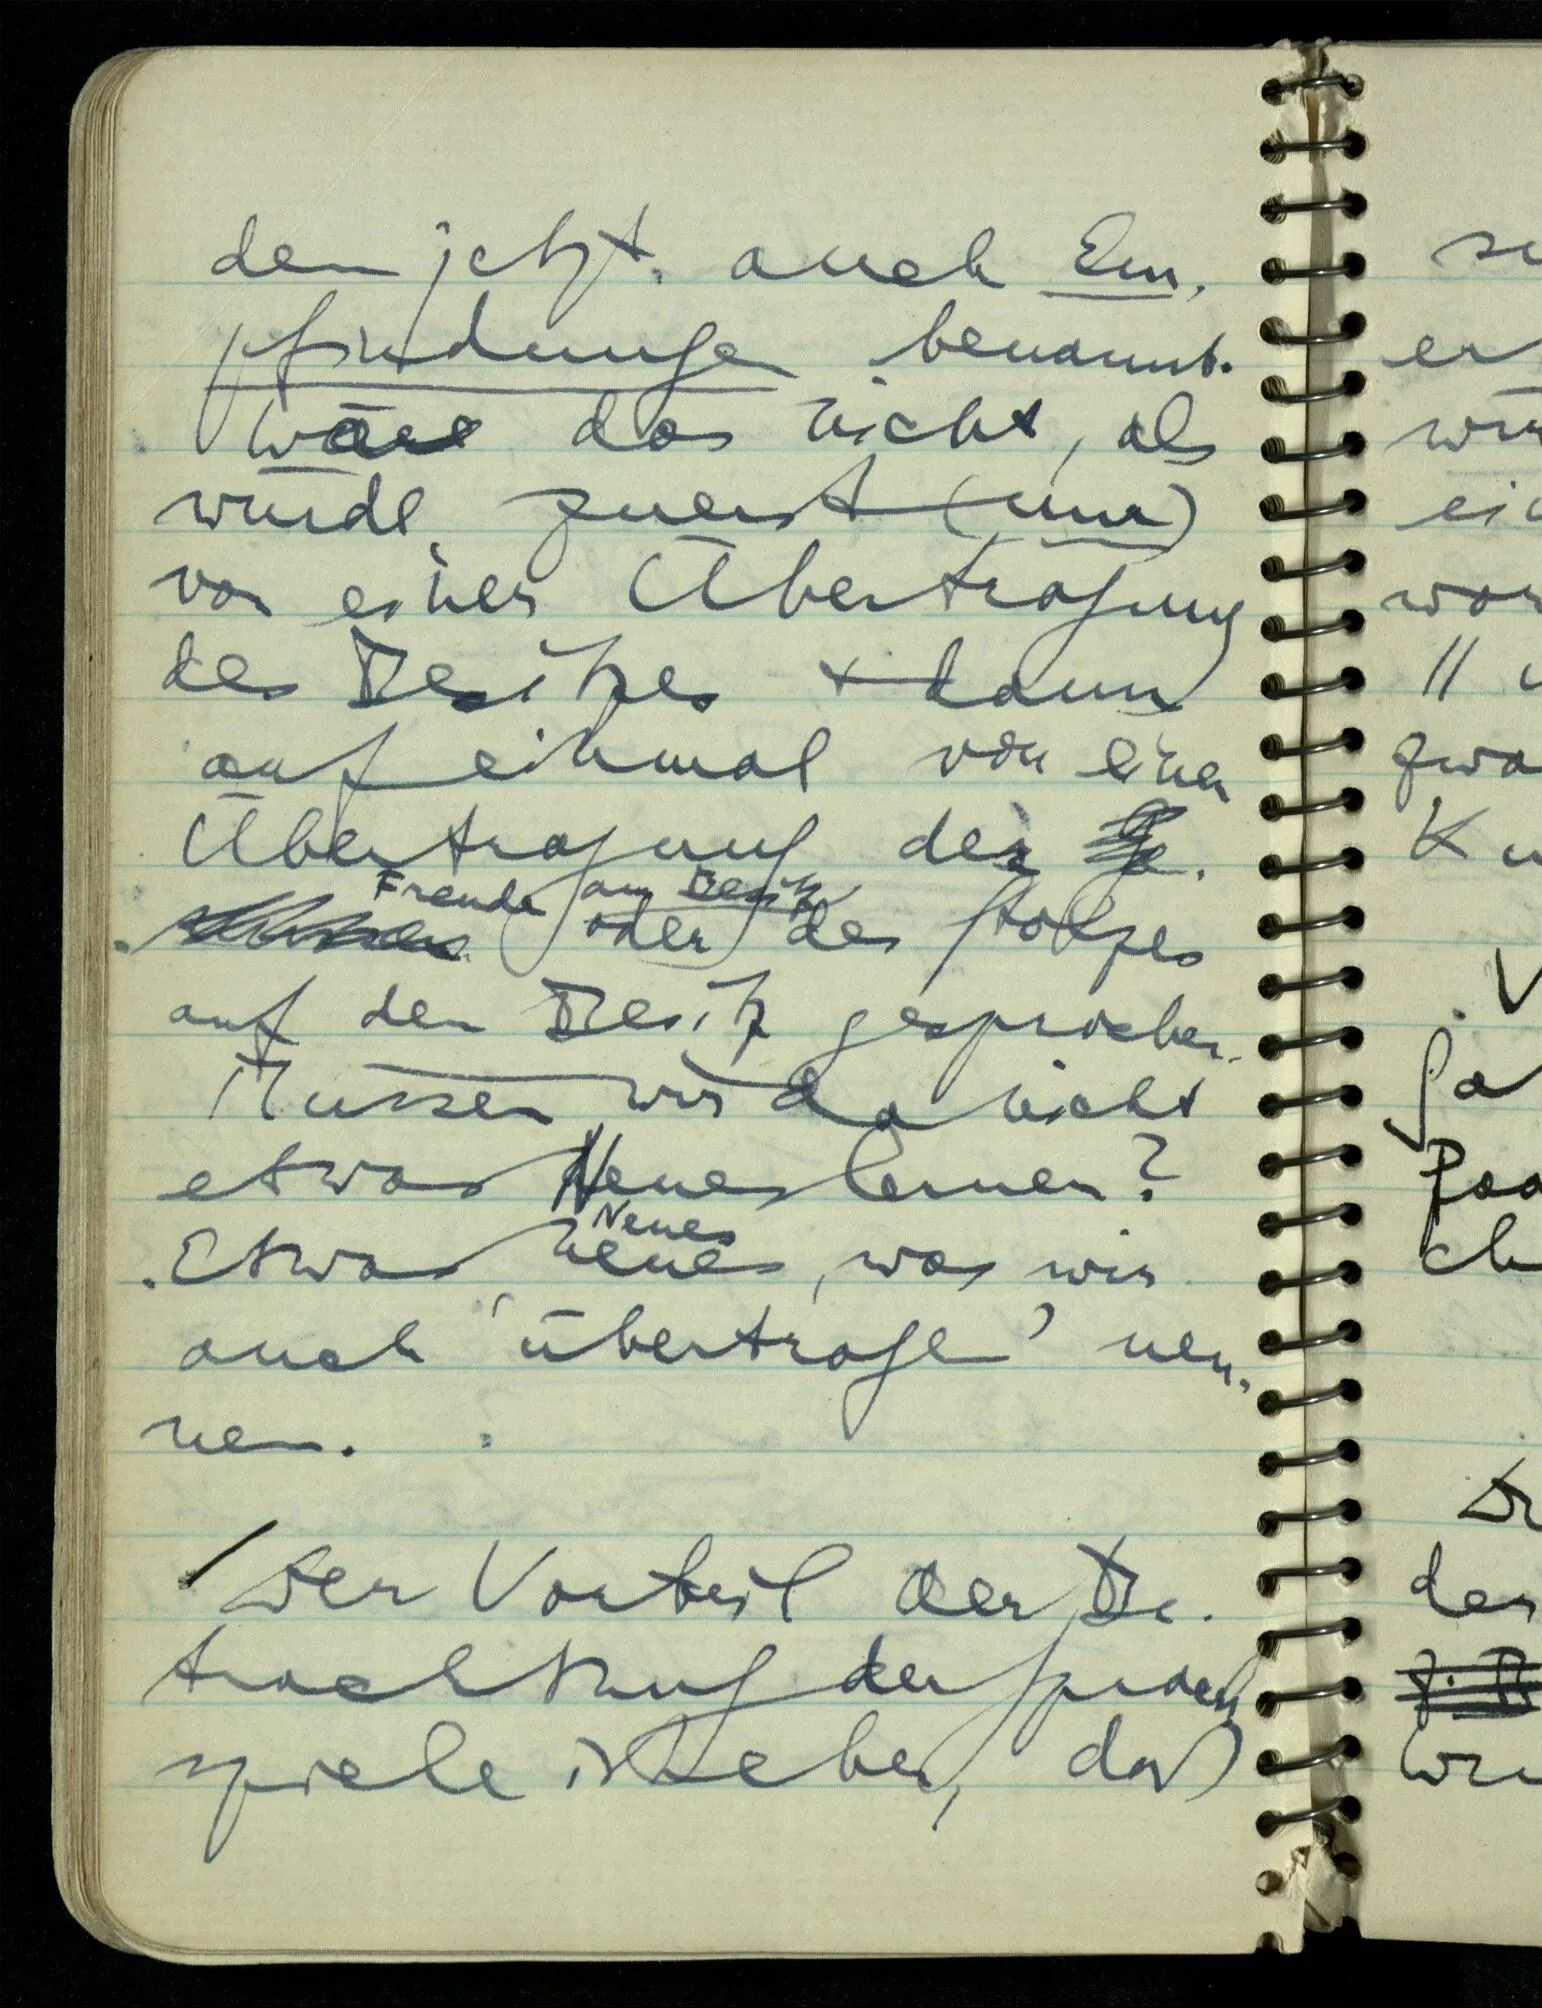 den jetzt auch Em-
pfindungen benannt.
Wäre das nicht, als
würde zuerst (nur)
von einer Übertragung
des Besitzes + dann
auf einmal von einer
Übertragung der
Freude am Besitz
oder des Stolzes
auf den Besitz gesprochen.
Müssen wir da nicht
etwas Neues lernen?
Neues
Etwas neues, was wir
auch 'übertragen' nen-
nen.
/ Der Vorteil der Be-
trachtung der Sprach
spiele ist eben, daß
er
wor
"
zwa
V
ga
ch
der